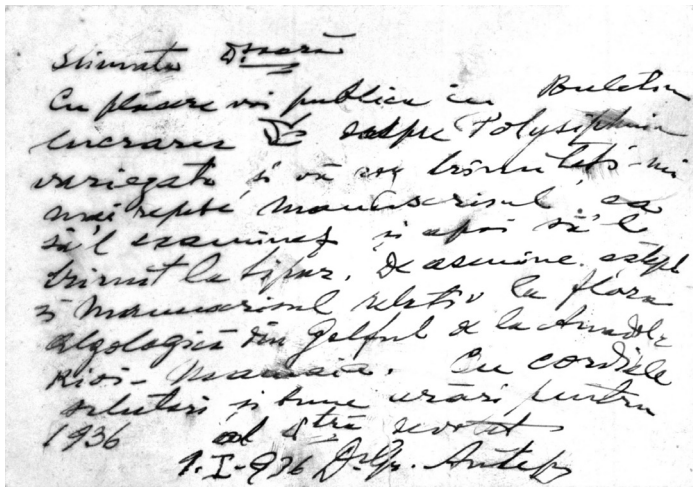 Stimata D.șoară
Cu plăcere voi publica în Buletin
lucrarea Dv despre Polysiphonia
variegata și vă rog trimiteți-mi
mai repede manuscrisul, ca
să'l examinez și apoi să'l
trimit la tipar. De asemine aștept
și manuscrisul relativ la flora
algologică din golful de la Anadol-
Kioi - Mamaia. Cu cordiale
salutări și bune urări pentru
1936 al Dtră devotat
1.I-936 Dr Gr. Antipa